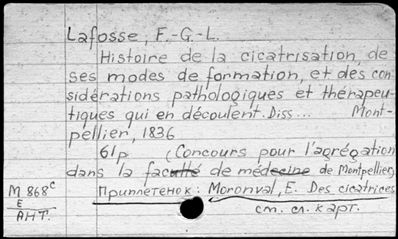 Lafosse, F.-G.-L.
Histoire de la cicatrisation, de
ses modes de formation, et des con
sidérations pathologiques et thérapeu-
tiques qui en découlent. Diss... Mont-
pellier, 1836
61p (Concours pour l'agrégation
dans la faculté de médecine de Montpellier)
M 868c
E
АНТ.
Приплетенок: Moronval, E. Des cicatrices
см. сл. карт.